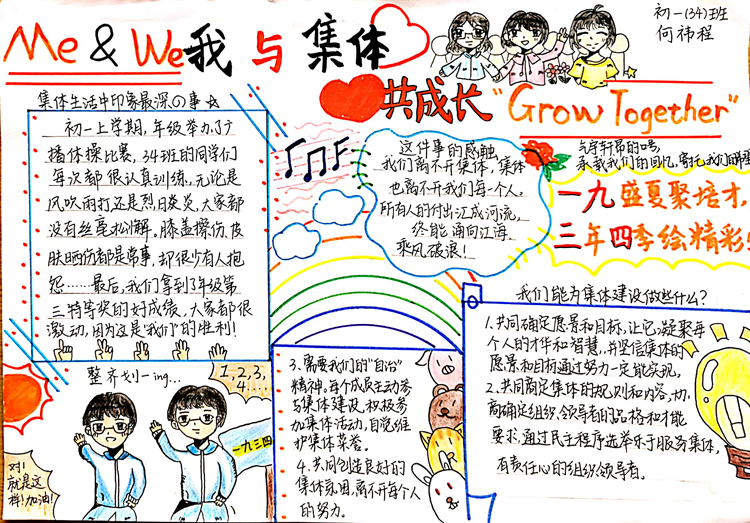 Me & We 我与集体
初一(34)班
何祎程
共成长 "Grow Together"
集体生活中印象最深の事☆
初一上学期,年级举办了广
播体操比赛,34班的同学们
每次都很认真训练,无论是
风吹雨打还是烈日炎炎,大家都
没有丝毫松懈。膝盖擦伤、皮
肤晒伤都是常事,却很少有人抱
怨……最后,我们拿到了年级第
三特等奖的好成绩,大家都很
激动,因为这是"我们"的胜利!
这件事的感触
我们离不开集体,集体
也离不开我们每个人。
所有人的付出汇成河流,
终能涌向江海,
乘风破浪!
气宇轩昂的吗
承载我们的回忆,寄托我们的
一九盛夏聚培才,
三年四季绘精彩
整齐划一ing...
1,2,3,
4.....
对!
就是这
样!加油!
一九三四
3.需要我们的"自治"
精神,每个成员主动参
与集体建设,积极参
加集体活动,自觉维
护集体荣誉。
4.共同创造良好的
集体氛围,离不开每个人
的努力。
我们能为集体建设做些什么?
1.共同确定愿景和目标,让它凝聚每
个人的才华和智慧,并坚信集体的
愿景和目标通过努力一定能实现。
2.共同商定集体的规则和内容,协
商确定组织、领导者的品格和才能
要求,通过民主程序选举乐于服务集体,
有责任心的组织领导者。